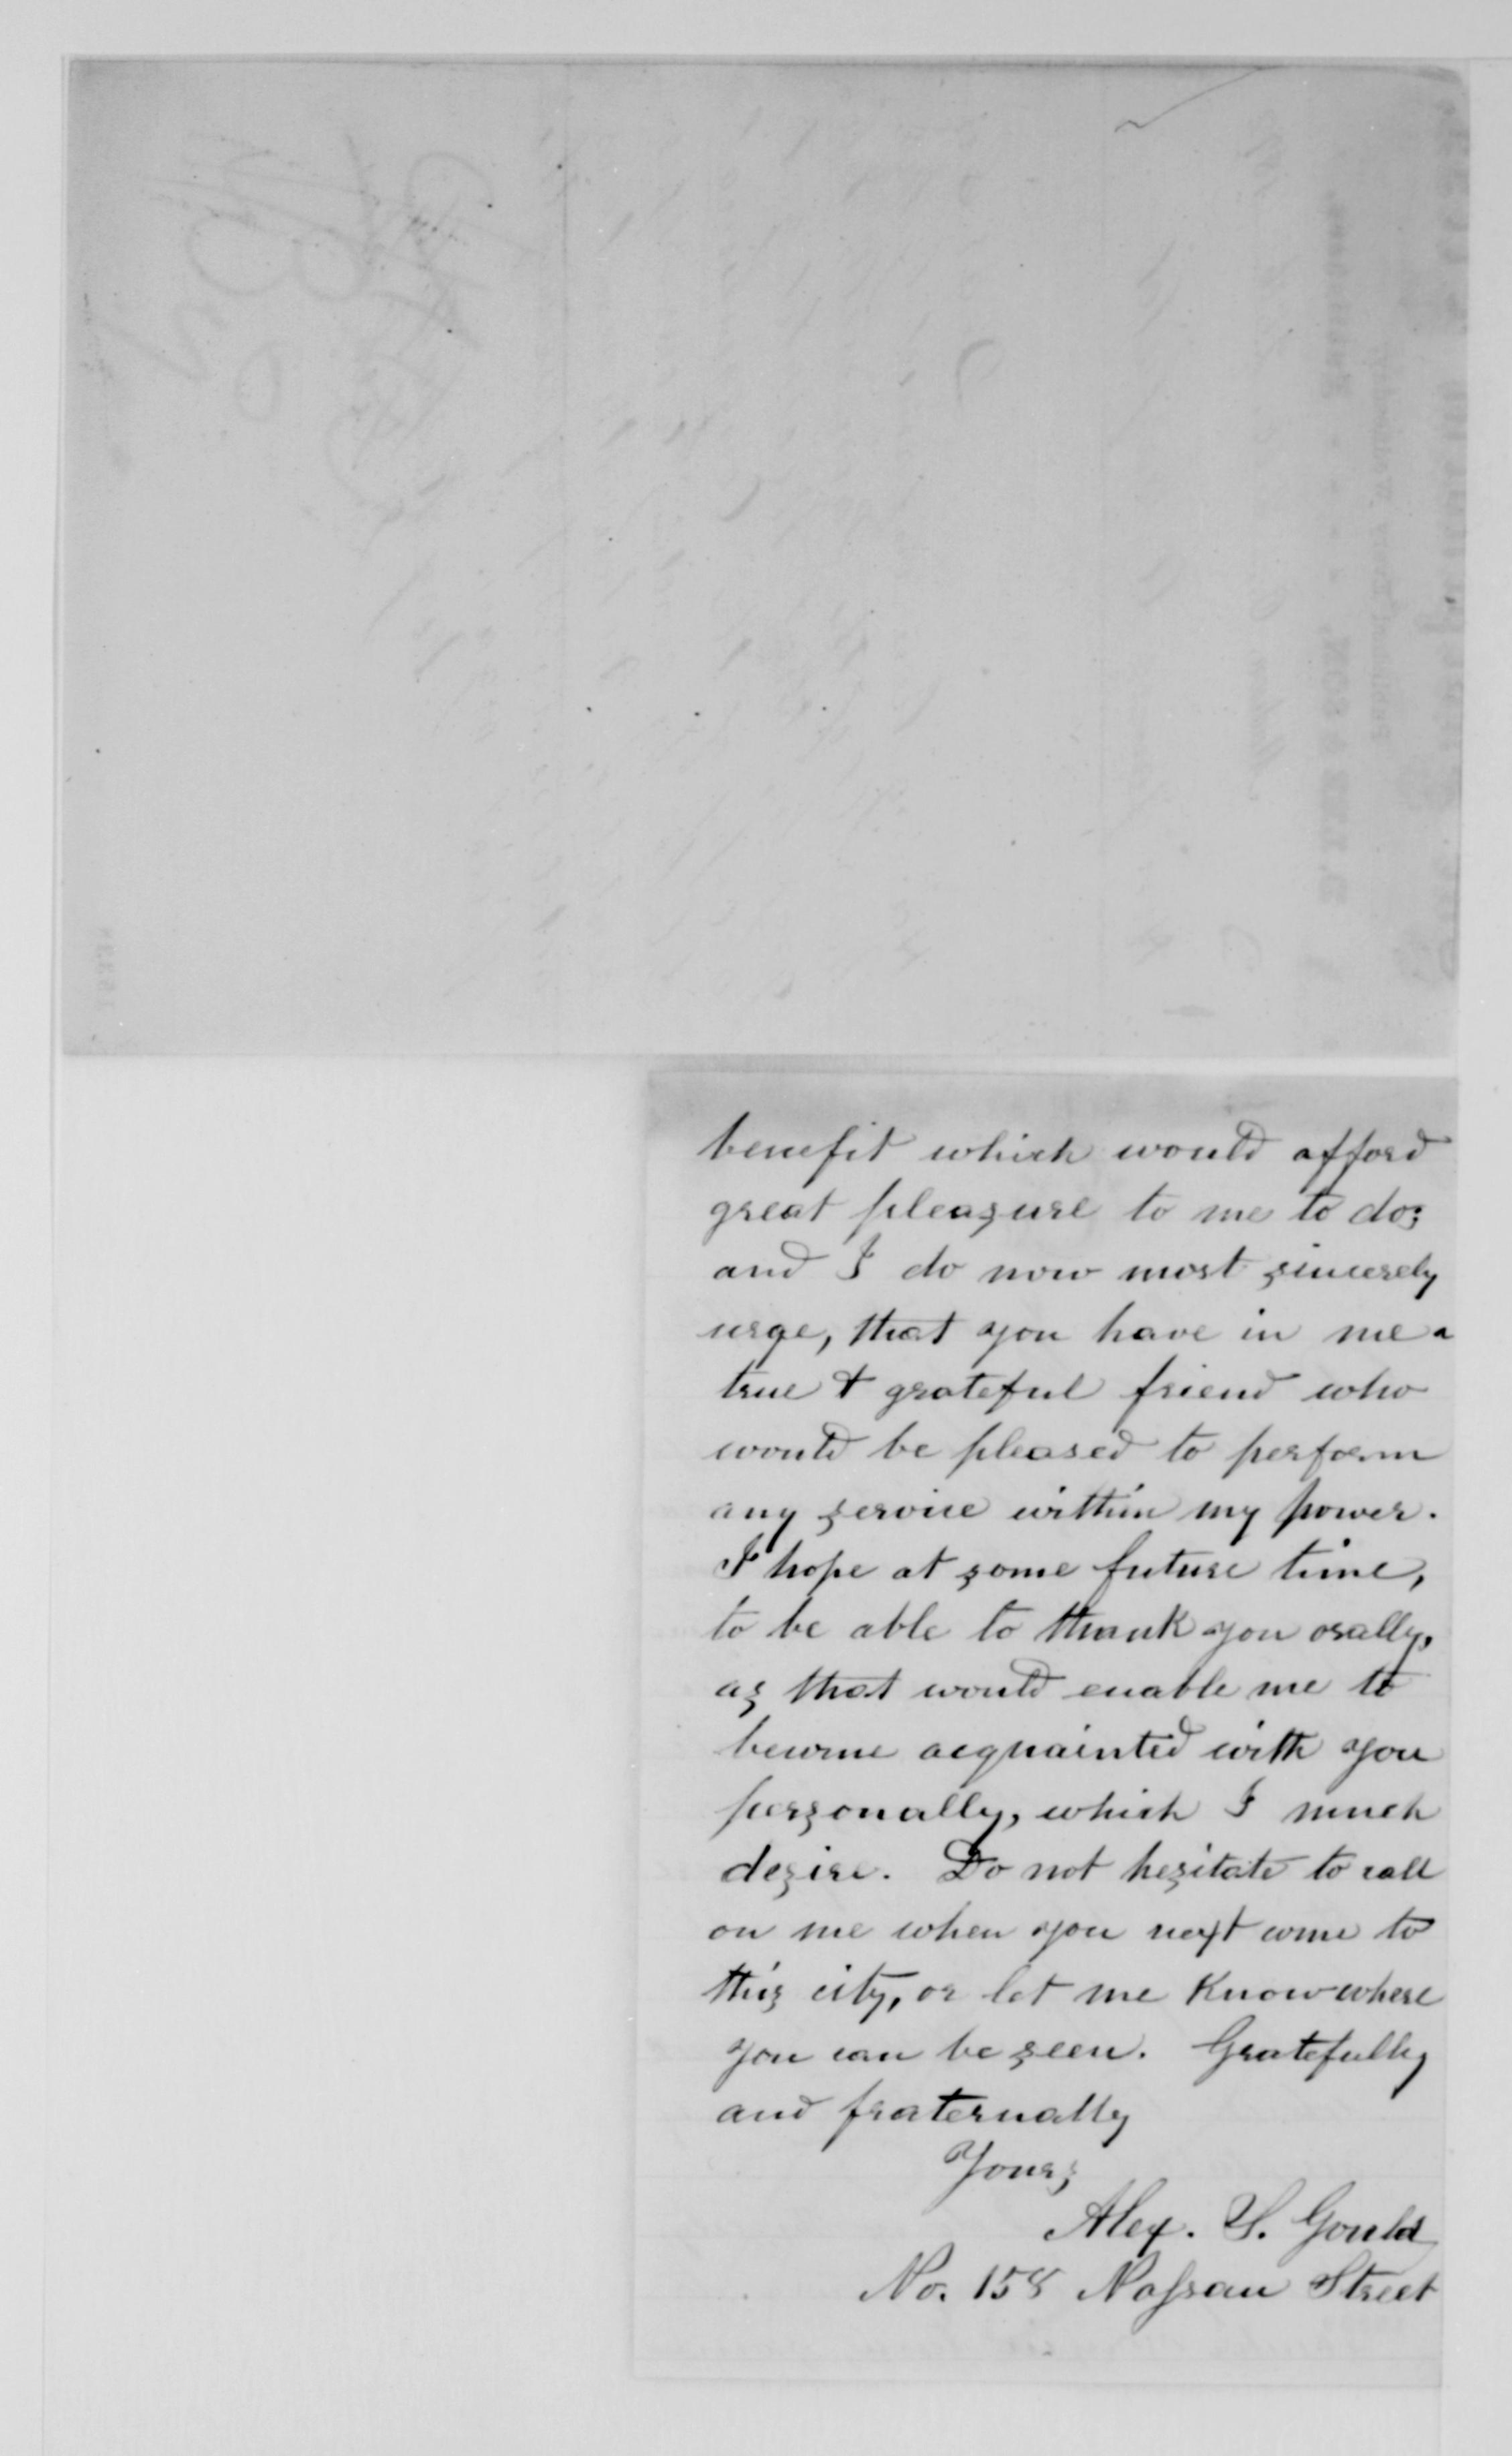 benefit which would afford
great pleasure to me to do;
and I do now most sincerely
urge, that you have in me a
true & grateful friend who
would be pleased to perform
any service within my power.
I hope at some future time,
to be able to thank you orally,
as that would enable me to
become acquainted with you
personally, which I much
desire. Do not hesitate to call
on me when you next come to
this city, or let me know where
you can be seen. Gratefully
and fraternally
Yours
Alex. S. Gould
No. 158 Nassau Street